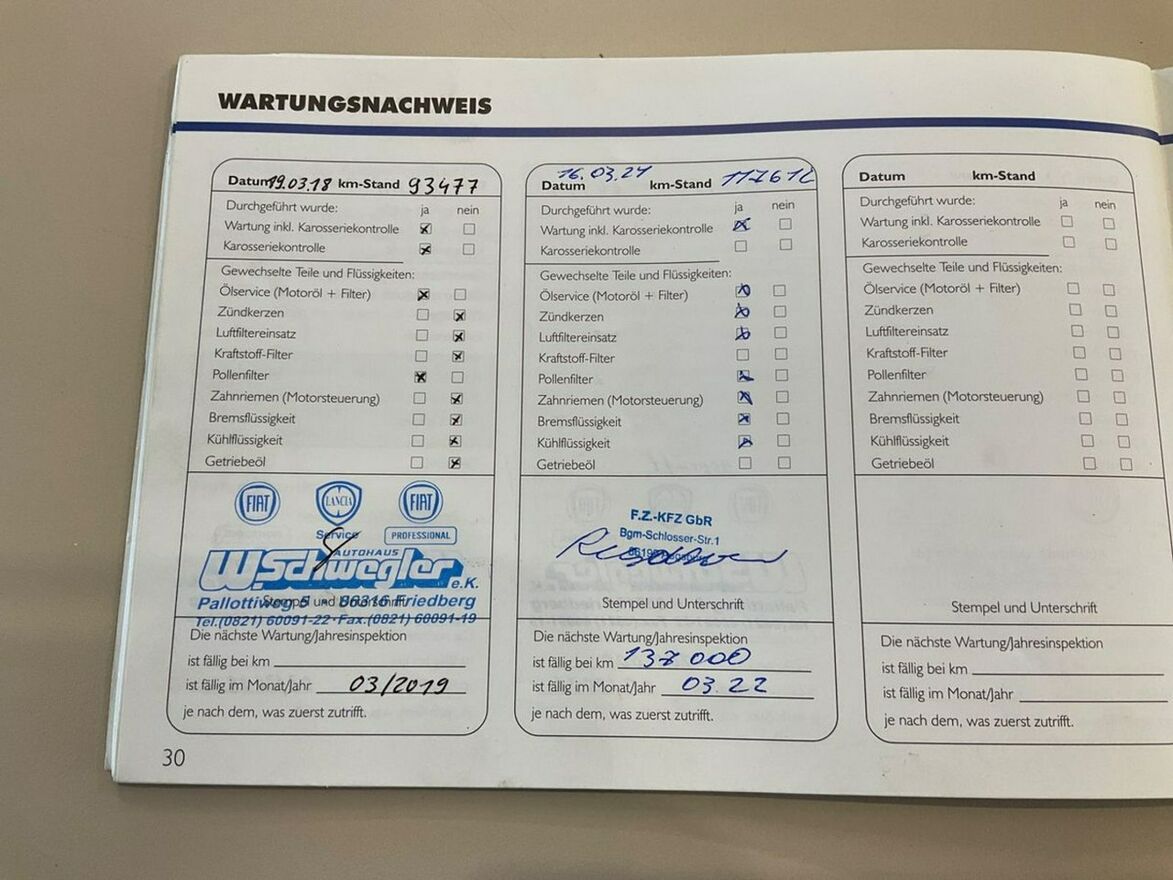 WARTUNGSNACHWEIS
Datum 19.03.18 km-Stand 93477
Durchgeführt wurde: ja nein
Wartung inkl. Karosseriekontrolle
Karosseriekontrolle
Gewechselte Teile und Flüssigkeiten:
Ölservice (Motoröl + Filter)
Zündkerzen
Luftfiltereinsatz
Kraftstoff-Filter
Pollenfilter
Zahnriemen (Motorsteuerung)
Bremsflüssigkeit
Kühlflüssigkeit
Getriebeöl
FIAT LANCIA FIAT
Service PROFESSIONAL
AUTOHAUS
W.Schwegler e.K.
Stempel und Unterschrift
Pallottiweg 5 - 86316 Friedberg
Tel.(0821) 60091-22·Fax.(0821) 60091-19
Die nächste Wartung/Jahresinspektion
ist fällig bei km
ist fällig im Monat/Jahr 03/2019
je nach dem, was zuerst zutrifft.
30
Datum 16.03.21 km-Stand 117612
Durchgeführt wurde: ja nein
Wartung inkl. Karosseriekontrolle
Karosseriekontrolle
Gewechselte Teile und Flüssigkeiten:
Ölservice (Motoröl + Filter)
Zündkerzen
Luftfiltereinsatz
Kraftstoff-Filter
Pollenfilter
Zahnriemen (Motorsteuerung)
Bremsflüssigkeit
Kühlflüssigkeit
Getriebeöl
F.Z.-KFZ GbR
Bgm-Schlosser-Str.1
Stempel und Unterschrift
Die nächste Wartung/Jahresinspektion
ist fällig bei km 137 000
ist fällig im Monat/Jahr 03.22
je nach dem, was zuerst zutrifft.
Datum km-Stand
Durchgeführt wurde: ja nein
Wartung inkl. Karosseriekontrolle
Karosseriekontrolle
Gewechselte Teile und Flüssigkeiten:
Ölservice (Motoröl + Filter)
Zündkerzen
Luftfiltereinsatz
Kraftstoff-Filter
Pollenfilter
Zahnriemen (Motorsteuerung)
Bremsflüssigkeit
Kühlflüssigkeit
Getriebeöl
Stempel und Unterschrift
Die nächste Wartung/Jahresinspektion
ist fällig bei km
ist fällig im Monat/Jahr
je nach dem, was zuerst zutrifft.